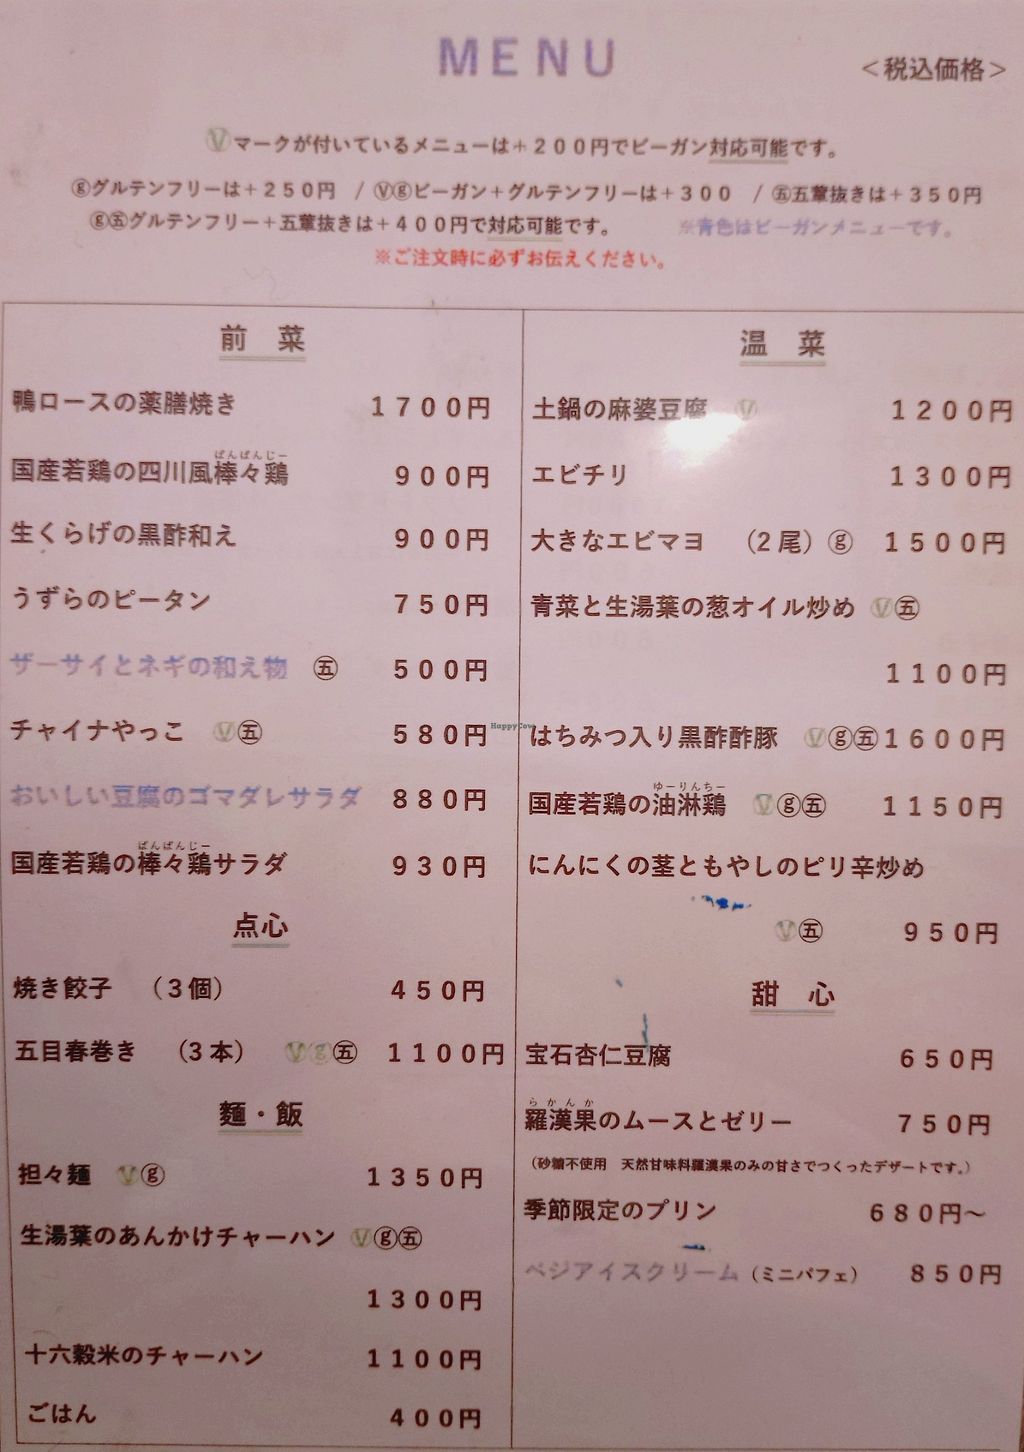 MENU
＜税込価格＞
Ⓥマークが付いているメニューは＋２００円でビーガン対応可能です。
ⓖグルテンフリーは＋２５０円 / Ⓥⓖビーガン＋グルテンフリーは＋３００ / ㊄五葷抜きは＋３５０円
ⓖ㊄グルテンフリー＋五葷抜きは＋４００円で対応可能です。 ※青色はビーガンメニューです。
※ご注文時に必ずお伝えください。
前 菜
鴨ロースの薬膳焼き １７００円
ばんばんじー
国産若鶏の四川風棒々鶏 ９００円
生くらげの黒酢和え ９００円
うずらのピータン ７５０円
ザーサイとネギの和え物 ㊄ ５００円
チャイナやっこ Ⓥ㊄ ５８０円
おいしい豆腐のゴマダレサラダ ８８０円
ばんばんじー
国産若鶏の棒々鶏サラダ ９３０円
点心
焼き餃子 （３個） ４５０円
五目春巻き （３本） Ⓥⓖ㊄ １１００円
麵・飯
担々麺 Ⓥⓖ １３５０円
生湯葉のあんかけチャーハン Ⓥⓖ㊄
１３００円
十六穀米のチャーハン １１００円
ごはん ４００円
温 菜
土鍋の麻婆豆腐 Ⓥ １２００円
エビチリ １３００円
大きなエビマヨ （２尾）ⓖ １５００円
青菜と生湯葉の葱オイル炒め Ⓥ㊄
１１００円
HappyCow
はちみつ入り黒酢酢豚 Ⓥⓖ㊄ １６００円
ゆーりんちー
国産若鶏の油淋鶏 Ⓥⓖ㊄ １１５０円
にんにくの茎ともやしのピリ辛炒め
Ⓥ㊄ ９５０円
甜 心
宝石杏仁豆腐 ６５０円
らかんか
羅漢果のムースとゼリー ７５０円
（砂糖不使用 天然甘味料羅漢果のみの甘さでつくったデザートです。）
季節限定のプリン ６８０円～
ベジアイスクリーム（ミニパフェ） ８５０円